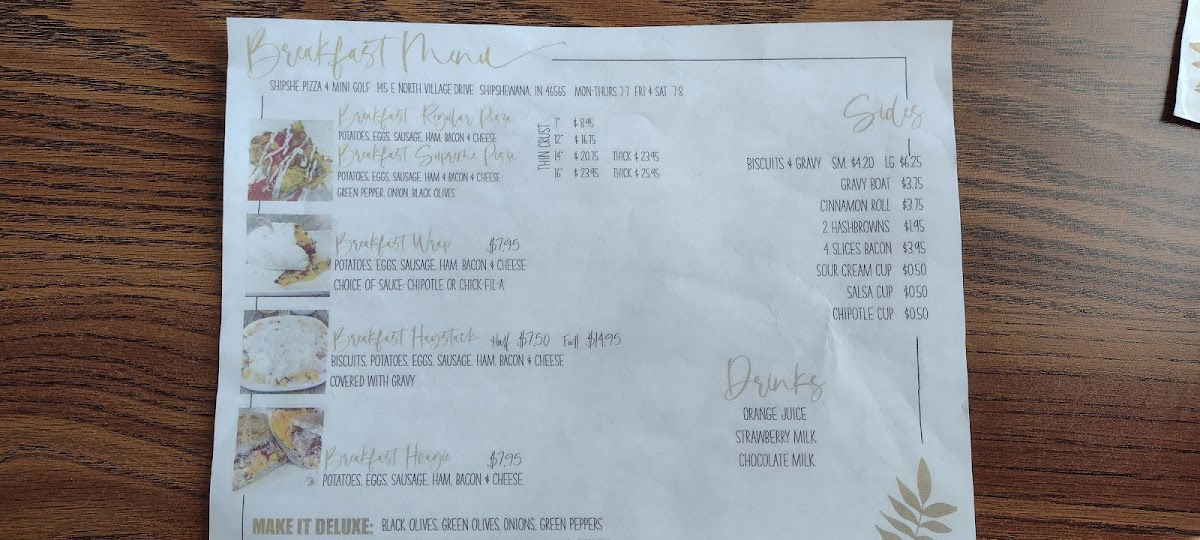 Breakfast Menu
SHIPSHE PIZZA & MINI GOLF 145 E NORTH VILLAGE DRIVE SHIPSHEWANA, IN 46565 MON-THURS 7-7 FRI & SAT 7-8
Breakfast Regular Pizza
POTATOES, EGGS, SAUSAGE, HAM, BACON & CHEESE
Breakfast Supreme Pizza
POTATOES, EGGS, SAUSAGE, HAM & BACON & CHEESE
GREEN PEPPER, ONION, BLACK OLIVES
THIN CRUST
7" $8.95
12" $16.75
14" $20.75 THICK $23.95
16" $23.95 THICK $25.95
Breakfast Wrap $7.95
POTATOES, EGGS, SAUSAGE, HAM, BACON & CHEESE
CHOICE OF SAUCE: CHIPOTLE OR CHICK-FIL-A
Breakfast Haystack Half $7.50 Full $14.95
BISCUITS, POTATOES, EGGS, SAUSAGE, HAM, BACON & CHEESE
COVERED WITH GRAVY
Breakfast Hoagie $7.95
POTATOES, EGGS, SAUSAGE, HAM, BACON & CHEESE
MAKE IT DELUXE: BLACK OLIVES, GREEN OLIVES, ONIONS, GREEN PEPPERS
Sides
BISCUITS & GRAVY SM. $4.20 LG $6.25
GRAVY BOAT $3.75
CINNAMON ROLL $3.75
2 HASHBROWNS $1.95
4 SLICES BACON $3.95
SOUR CREAM CUP $0.50
SALSA CUP $0.50
CHIPOTLE CUP $0.50
Drinks
ORANGE JUICE
STRAWBERRY MILK
CHOCOLATE MILK